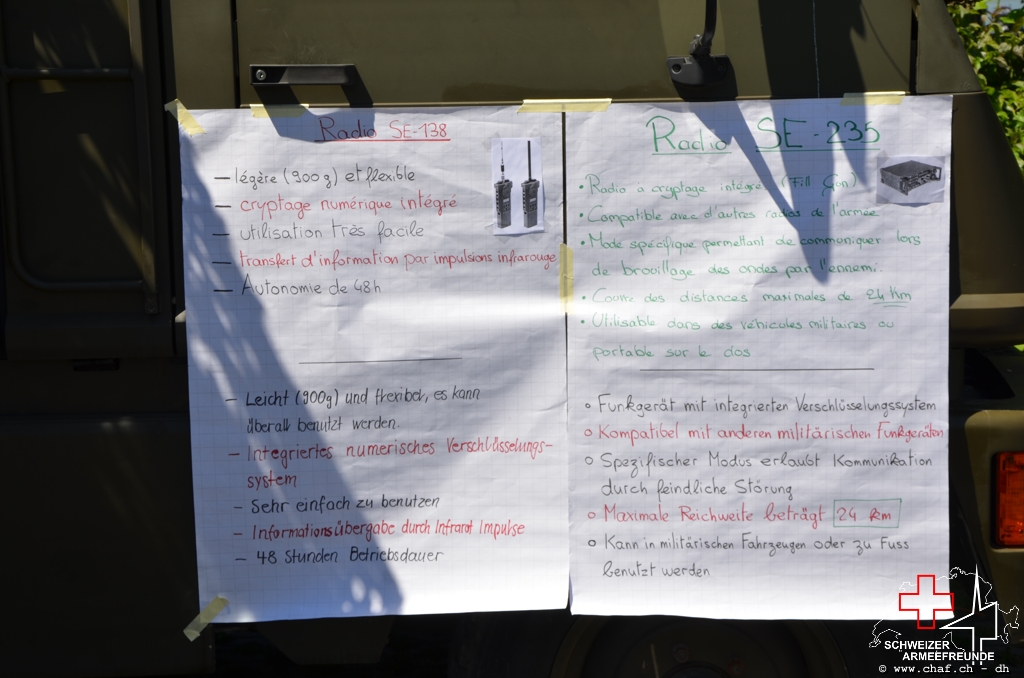 Radio SE-138
– légère (900g) et flexible
– cryptage numérique intégré
– utilisation très facile
– transfert d'information par impulsions infrarouge
– Autonomie de 48h
– Leicht (900g) und flexibel, es kann
überall benutzt werden.
– Integriertes numerisches Verschlüsselungs-
system
– Sehr einfach zu benutzen
– Informationsübergabe durch Infrarot Impulse
– 48 Stunden Betriebsdauer
Radio SE-235
• Radio a cryptage intégré (Fill Gun)
• Compatible avec d'autres radios de l'armée
• Mode spécifique permettant de communiquer lors
de brouillage des ondes par l'ennemi.
• Couvre des distances maximales de 24 km
• Utilisable dans des véhicules militaires ou
portable sur le dos
o Funkgerät mit integrierten Verschlüsselungssystem
o Kompatibel mit anderen militärischen Funkgeräten
o Spezifischer Modus erlaubt Kommunikation
durch feindliche Störung
o Maximale Reichweite beträgt 24 km
o Kann in militärischen Fahrzeugen oder zu Fuss
benutzt werden
SCHWEIZER
ARMEEFREUNDE
© www.chaf.ch - dh